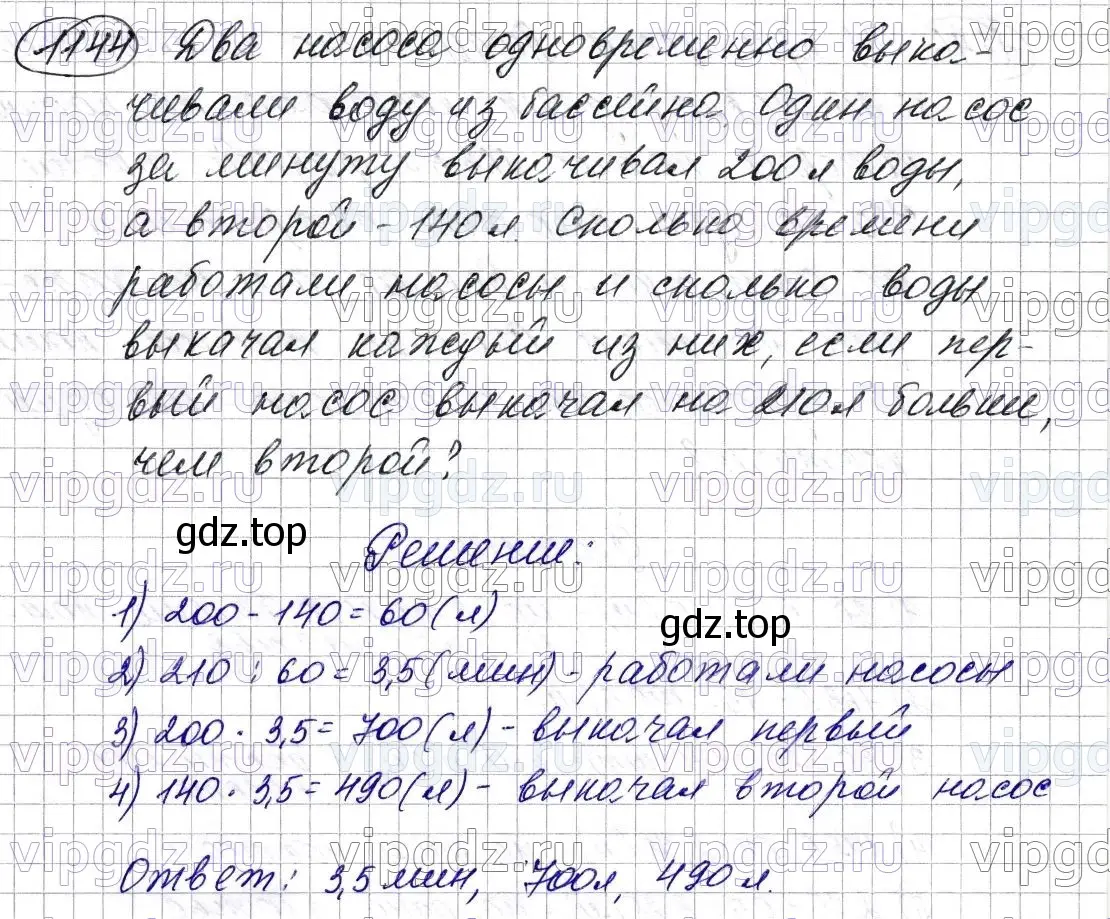 1144 Два насоса одновременно выка-
чивали воду из бассейна. Один насос
за минуту выкачивал 200 л воды,
а второй - 140 л. Сколько времени
работали насосы и сколько воды
выкачал каждый из них, если пер-
вый насос выкачал на 210 л больше,
чем второй?
gdz.top
Решение:
1) 200 - 140 = 60 (л)
gdz.top
2) 210 : 60 = 3,5 (мин) - работали насосы
3) 200 · 3,5 = 700 (л) - выкачал первый
4) 140 · 3,5 = 490 (л) - выкачал второй насос
Ответ: 3,5 мин, 700 л, 490 л.
vipgdz.ru